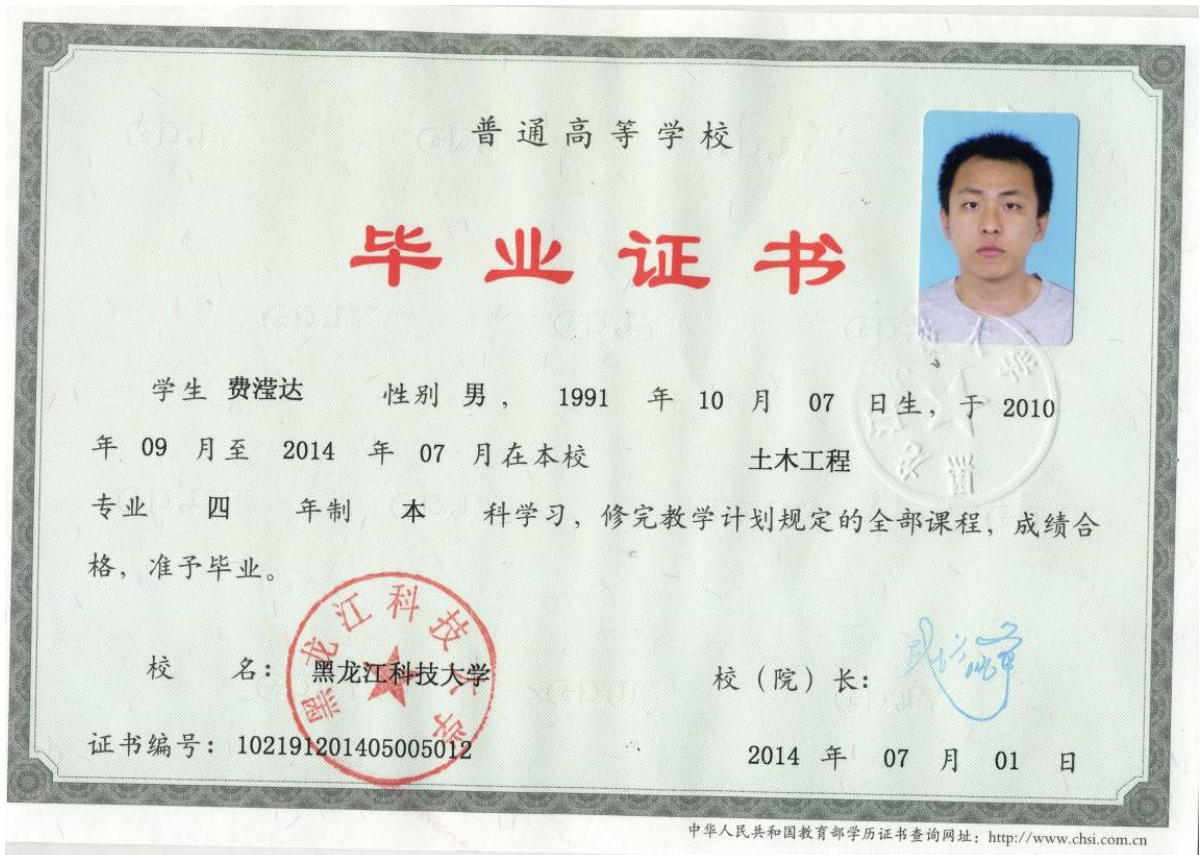 普通高等学校
毕业证书
学生 费滢达 性别 男，1991 年 10 月 07 日生，于 2010
年 09 月至 2014 年 07 月在本校 土木工程
专业 四 年制 本 科学习，修完教学计划规定的全部课程，成绩合
格，准予毕业。
黑龙江科技大学
校 名：黑龙江科技大学 校（院）长：
证书编号：102191201405005012 2014 年 07 月 01 日
中华人民共和国教育部学历证书查询网址：http://www.chsi.com.cn